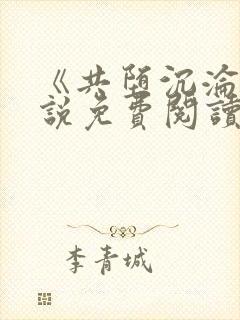 《共堕沉淪
說免費閱讀
李青城